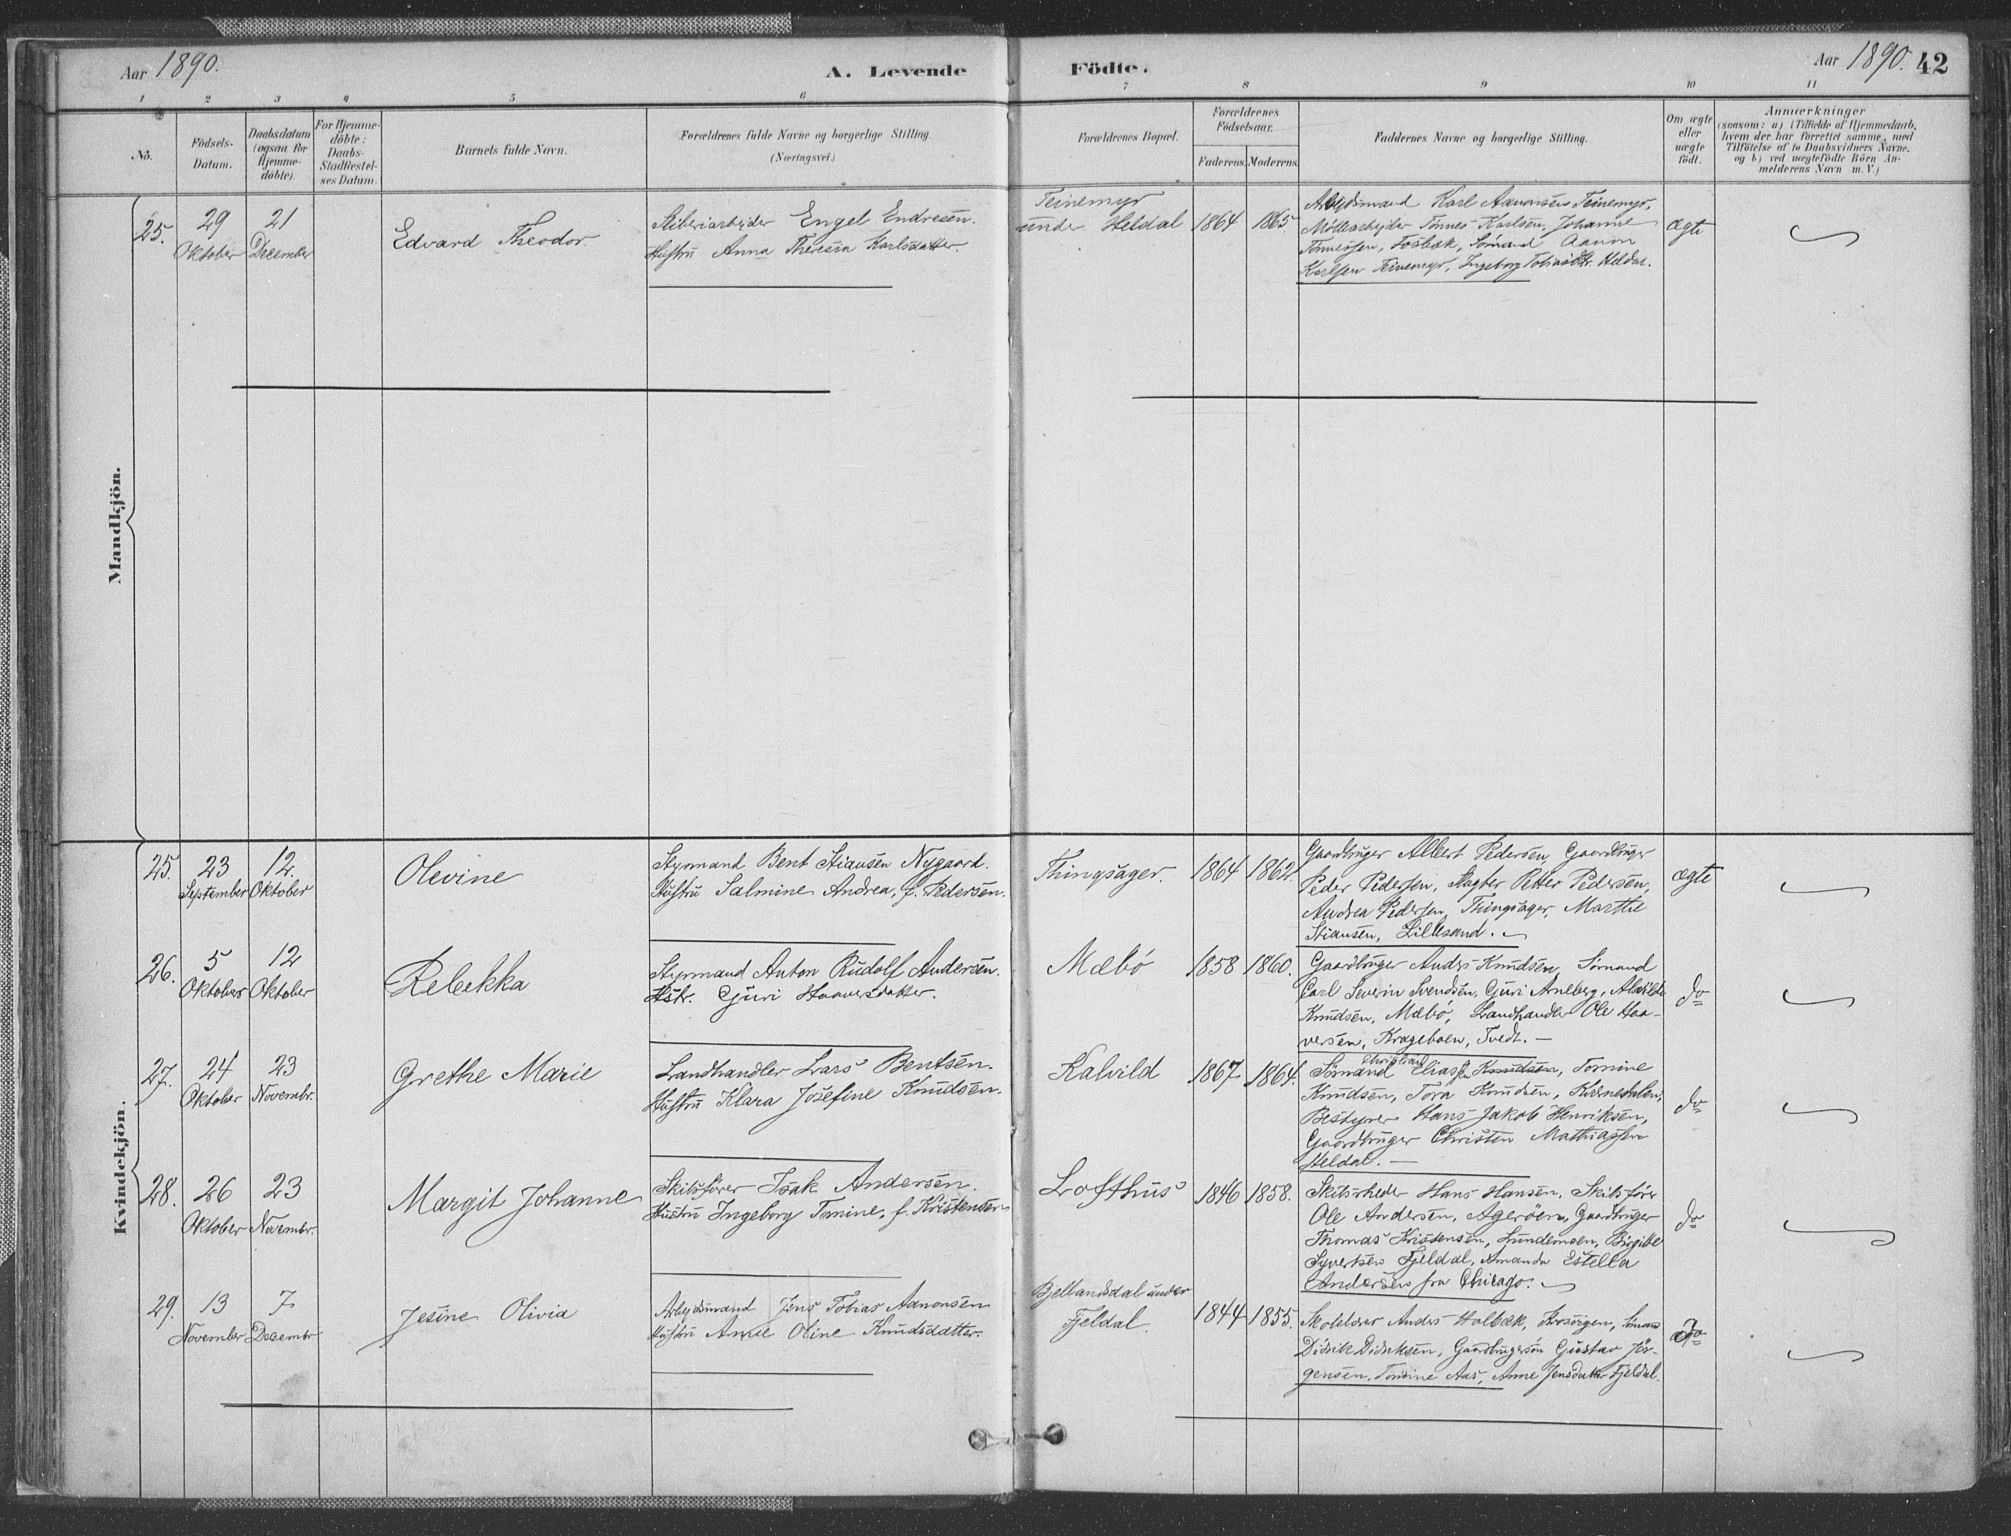 Aar 1890.
A. Levende Födte.
Aar 1890. 42
1 2 3 4 5 6 7 8 9 10 11
No.
Födsels-
Datum.
Daabsdatum
(ogsaa for
Hjemme-
döbte).
For Hjemme-
döbte:
Daabs-
Stadfæstel-
ses Datum.
Barnets fulde Navn.
Forældrenes fulde Navne og borgerlige Stilling.
(Næringsvei.)
Forældrenes Bopæl.
Forældrenes
Födselsaar.
Faderens. Moderens.
Faddernes Navne og borgerlige Stilling.
Om ægte
eller
uægte
födt.
Anmærkninger
(saasom: a) i Tilfælde af Hjemmedaab,
hvem der har forrettet samme, med
Tilföielse af to Daabsvidners Navne,
og b) ved uægtefödte Börn An-
melderens Navn m. V.)
Mandkjön.
25.
29
Oktober
21
December
Edvard Theodor.
Engel Endresen.
Hustru Anna Theresia Karlsdatter.
Teinemyr
under Heldal
1864 1865.
Karl Aanonsen Teinemyr,
Möllearbejder Tönnes Karlsen, Johanne
Tönnessen, Fosbæk, Sömand Aanon
Karlsen Teinemyr, Ingeborg Heldal.
ægte
Kvindekjön.
25.
23
September
12.
Oktober
Olevine
Styrmand Bent Stiansen Nygaard.
Hustru Salmine Andrea, f. Pedersen.
Thingsager.
1864 1862
Gaardbruger Albert Pedersen, Gaardbruger
Peder Pedersen, Slagter Petter Pedersen,
Andrea Pedersen, Thingsager, Marthe
Stiansen, Lillesand.
ægte
26.
5
Oktober
12
Oktober
Rebekka
Styrmand Anton Rudolf Andersen.
Hstr. Guri Haaversdatter.
Mæbö
1858 1860.
Gaardbruger Anders Knudsen, Sömand
Carl Severin Svendsen, Guri Arneberg,
Knudsen, Mæbö, Landhandler Ole Haa-
versen, Krageboen, Tvedt.
do
27.
24
Oktober
23
Novembr.
Grethe Marie
Landhandler Lars Bentsen.
Hustru Klara Josefine Knudsen.
Kalvild
1867 1864.
Christian
Sömand Elias Knudsen, Tomine
Knudsen, Tora Knudsen,
Bestyrer Hans Jakob Henriksen,
Gaardbruger Christen Mathiassen
Heldal.
do
28.
26
Oktober
23
Novembr.
Margit Johanne
Skibsfører Isak Andersen.
Hustru Ingeborg Tomine, f. Kristensen
Lofthus
1846 1858.
Skibsrheder Hans Hansen, Skibsförer
Ole Andersen, Ageröen, Gaardbruger
Thomas Kristensen, Lundemoen, Birgitte
Syvertsen Fjeldal, Amanda Estella
Andersen fra Chicago.
do
29.
13
November
7
Decembr
Jesine Olivia
Arbejdsmand Jens Tobias Aanonsen
Hustru Anne Oline Knudsdatter.
Bjellandsdal under
Fjeldal.
1844 1855.
Skolelærer Anders Holbæk, Sömand
Didrik Didriksen, Gaardbrugersön Gustav Jör-
gensen, Tomine Aas, Anne Jensdatter Fjeldal.
do